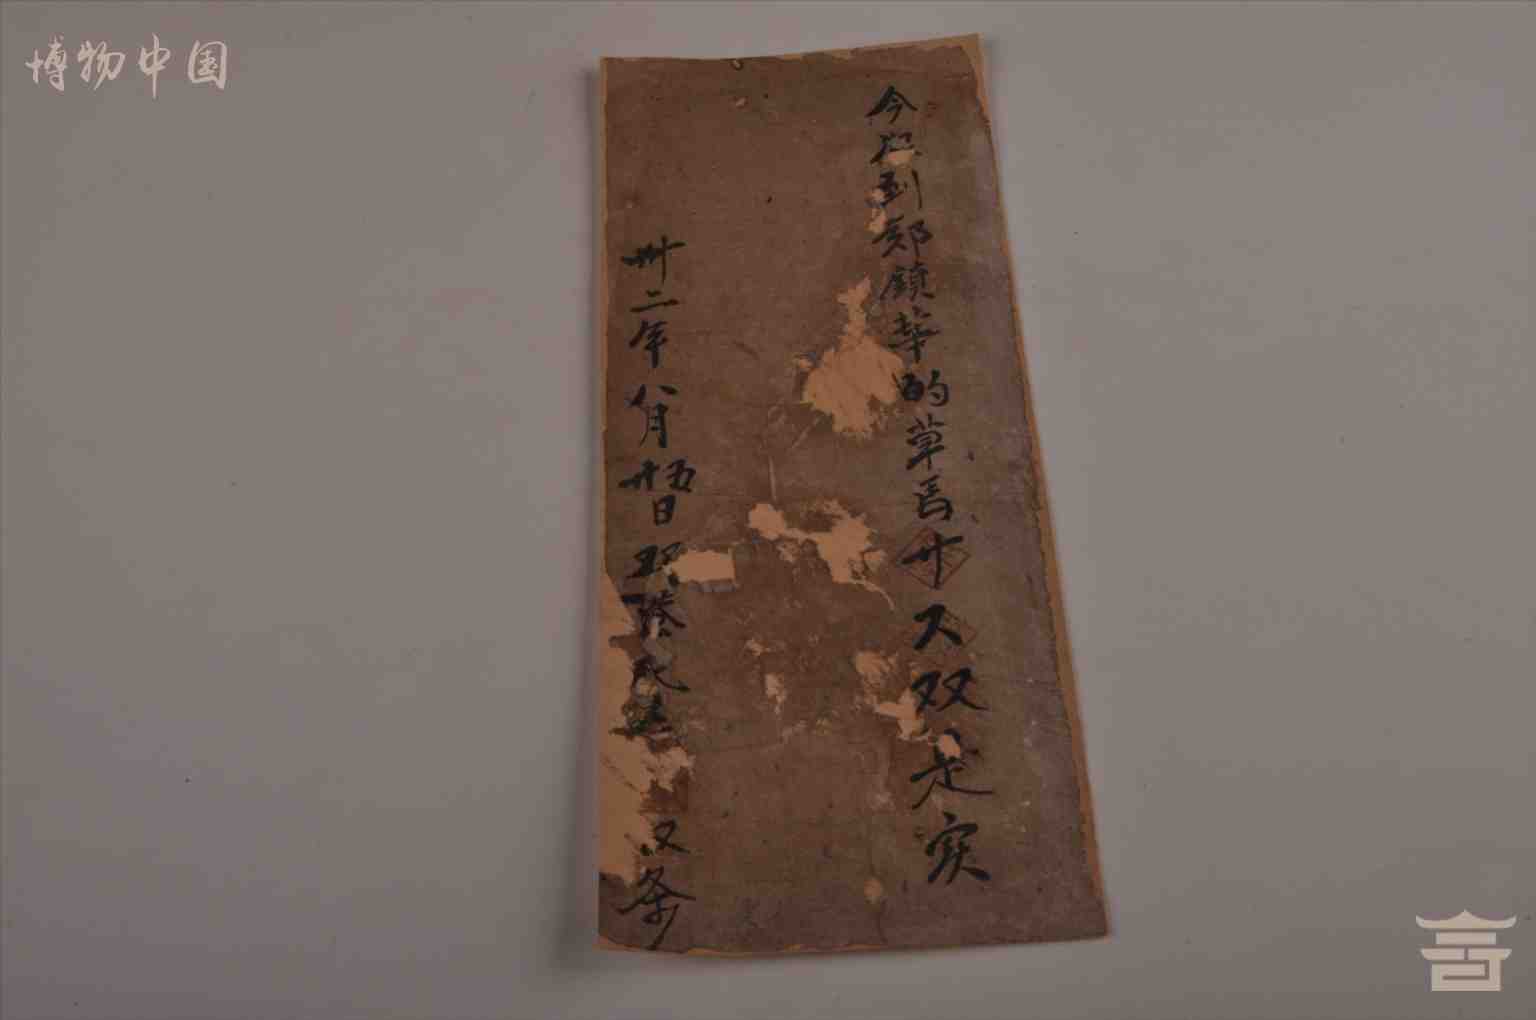 博物中国
今收到郑镇华的草舄廿又双是实
卅二年八月廿五日 收条